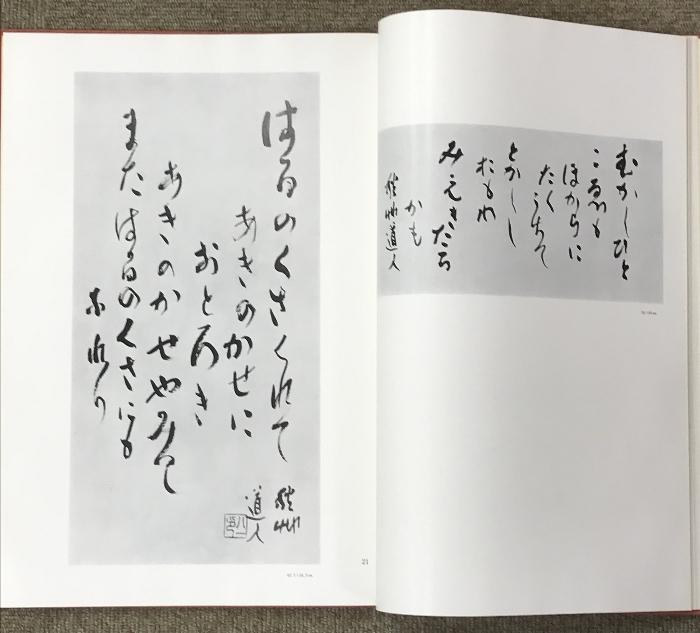 むかしひと
こゑも
ほからに
たくうちて
とかしし
おもわ
みえきたる
かも
秋艸道人
はるのくさくれて
あきのかせに
おとろき
あきのかせやみて
またはるのくさにも
なれり
秋艸
道人
21